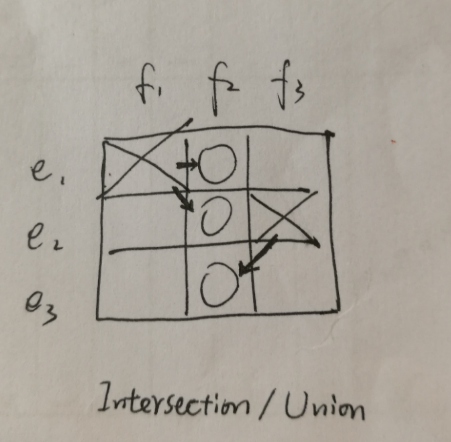 f₁ f₂ f₃
e₁
e₂
e₃
Intersection / Union